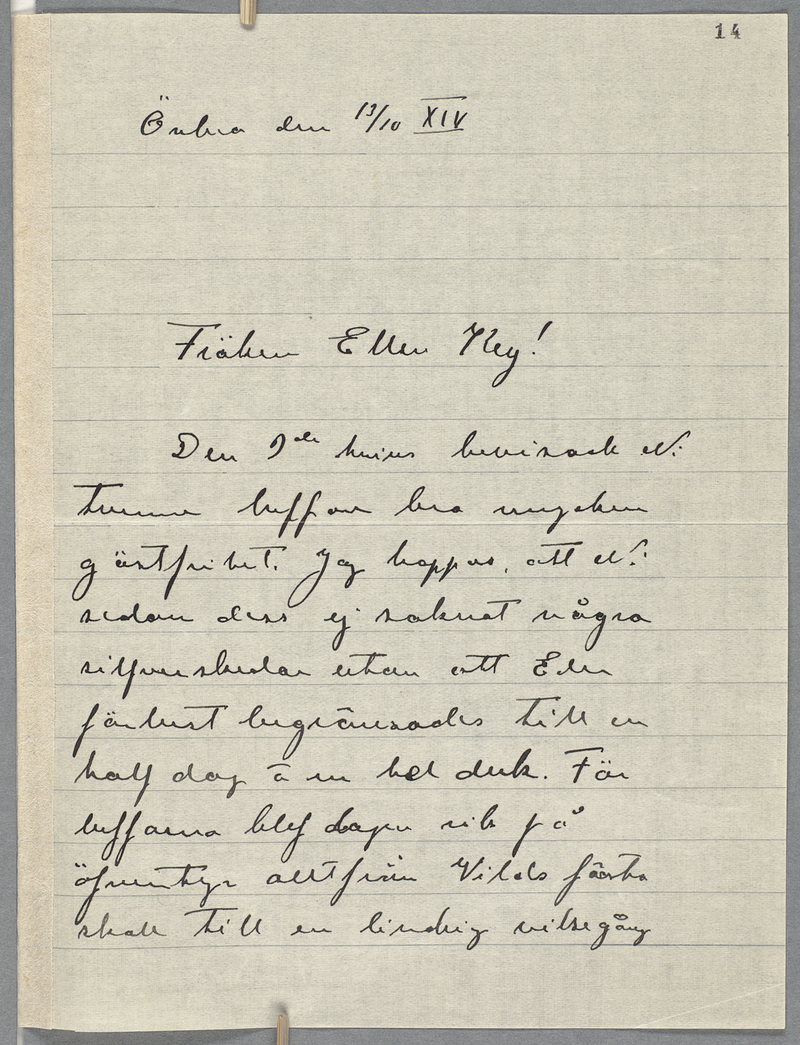 14
den 13/10 XIV
Fröken Ellen Key!
Den 9de hujus bevisade Ni
tvenne luffare bra mycken
gästfrihet. Jag hoppas, att Ni
sedan dess ej saknat några
silfverskedar utan att Eder
förlust begränsades till en
half dag à en hel duk. För
luffarna blef dagen rik på
öfventyr allt från Vilds första
skall till en lindrig vilsegång